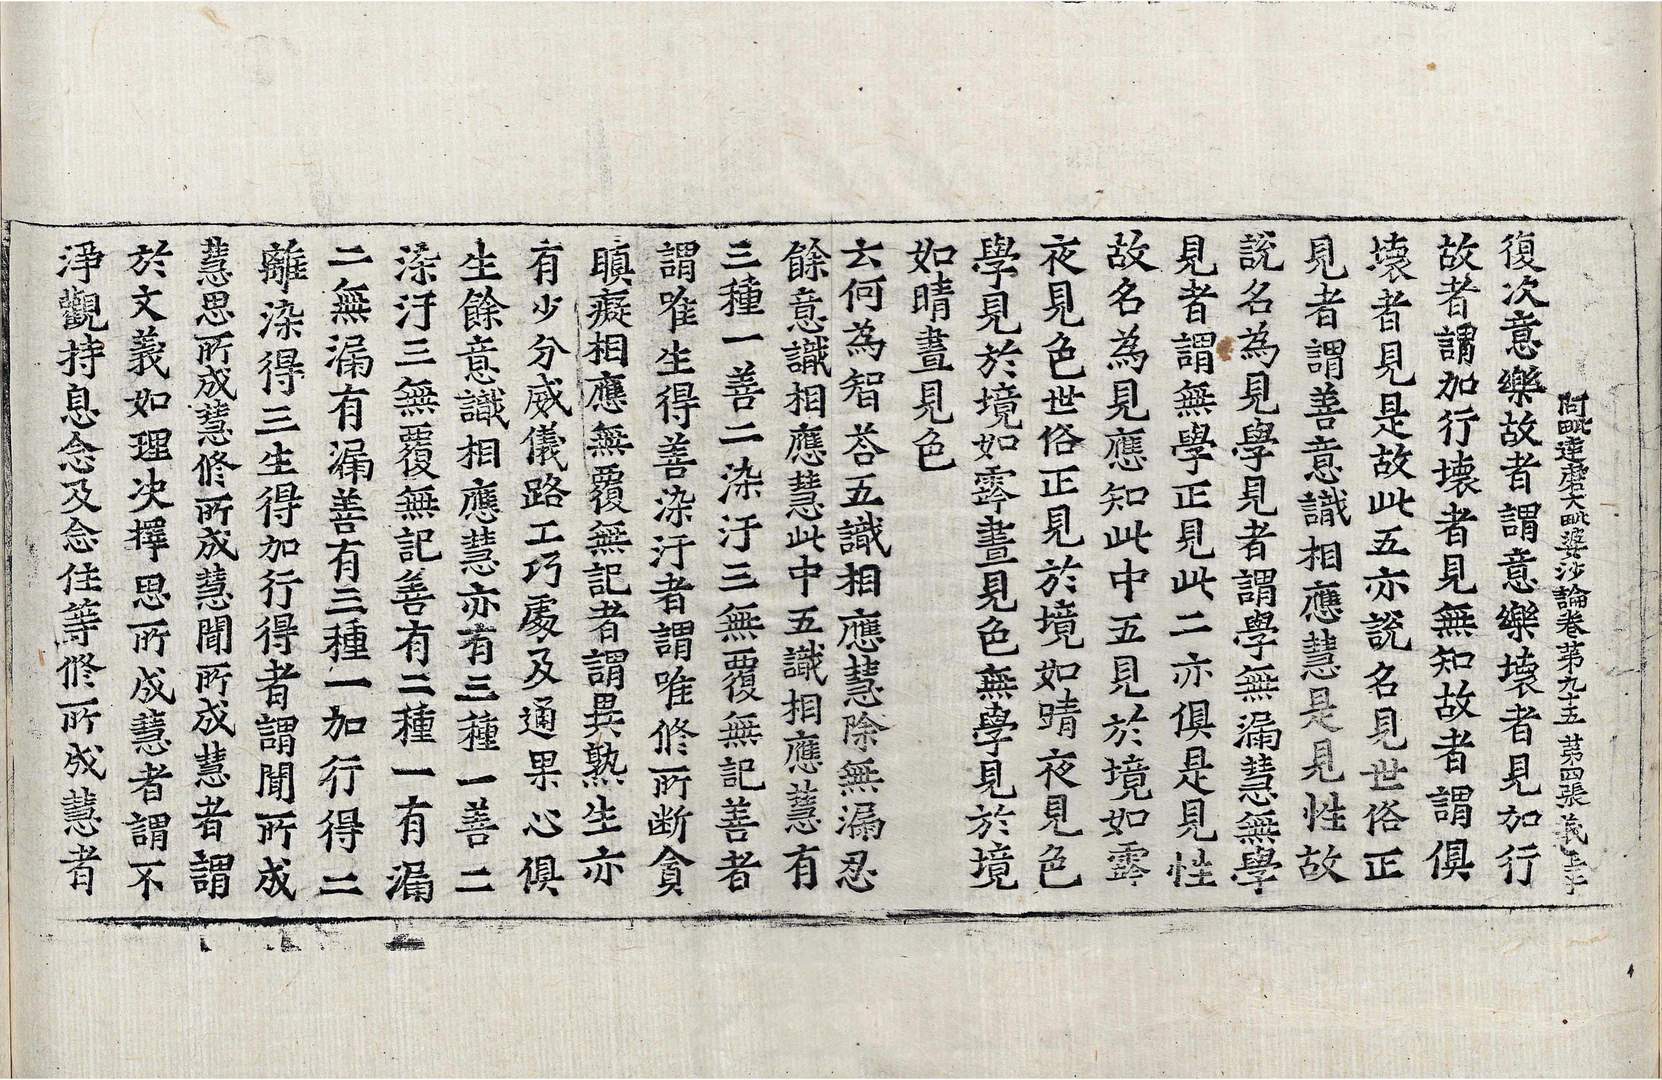 阿毗達磨大毗婆沙論卷第九十五 第四張 義
復次意樂故者謂意樂壞者見加行
故者謂加行壞者見無知故者謂俱
壞者見是故此五亦說名見世俗正
見者謂善意識相應慧是見性故
說名為見學見者謂學無漏慧無學
見者謂無學正見此二亦俱是見性
故名為見應知此中五見於境如霒
夜見色世俗正見於境如晴夜見色
學見於境如霒晝見色無學見於境
如晴晝見色
云何為智荅五識相應慧除無漏忍
餘意識相應慧此中五識相應慧有
三種一善二染汙三無覆無記善者
謂唯生得善染汙者謂唯修所断貪
瞋癡相應無覆無記者謂異熟生亦
有少分威儀路工巧處及通果心俱
生餘意識相應慧亦有三種一善二
染汙三無覆無記善有二種一有漏
二無漏有漏善有三種一加行得二
離染得三生得加行得者謂聞所成
慧思所成慧修所成慧聞所成慧者謂
於文義如理决擇思所成慧者謂不
淨觀持息念及念住等修所成慧者